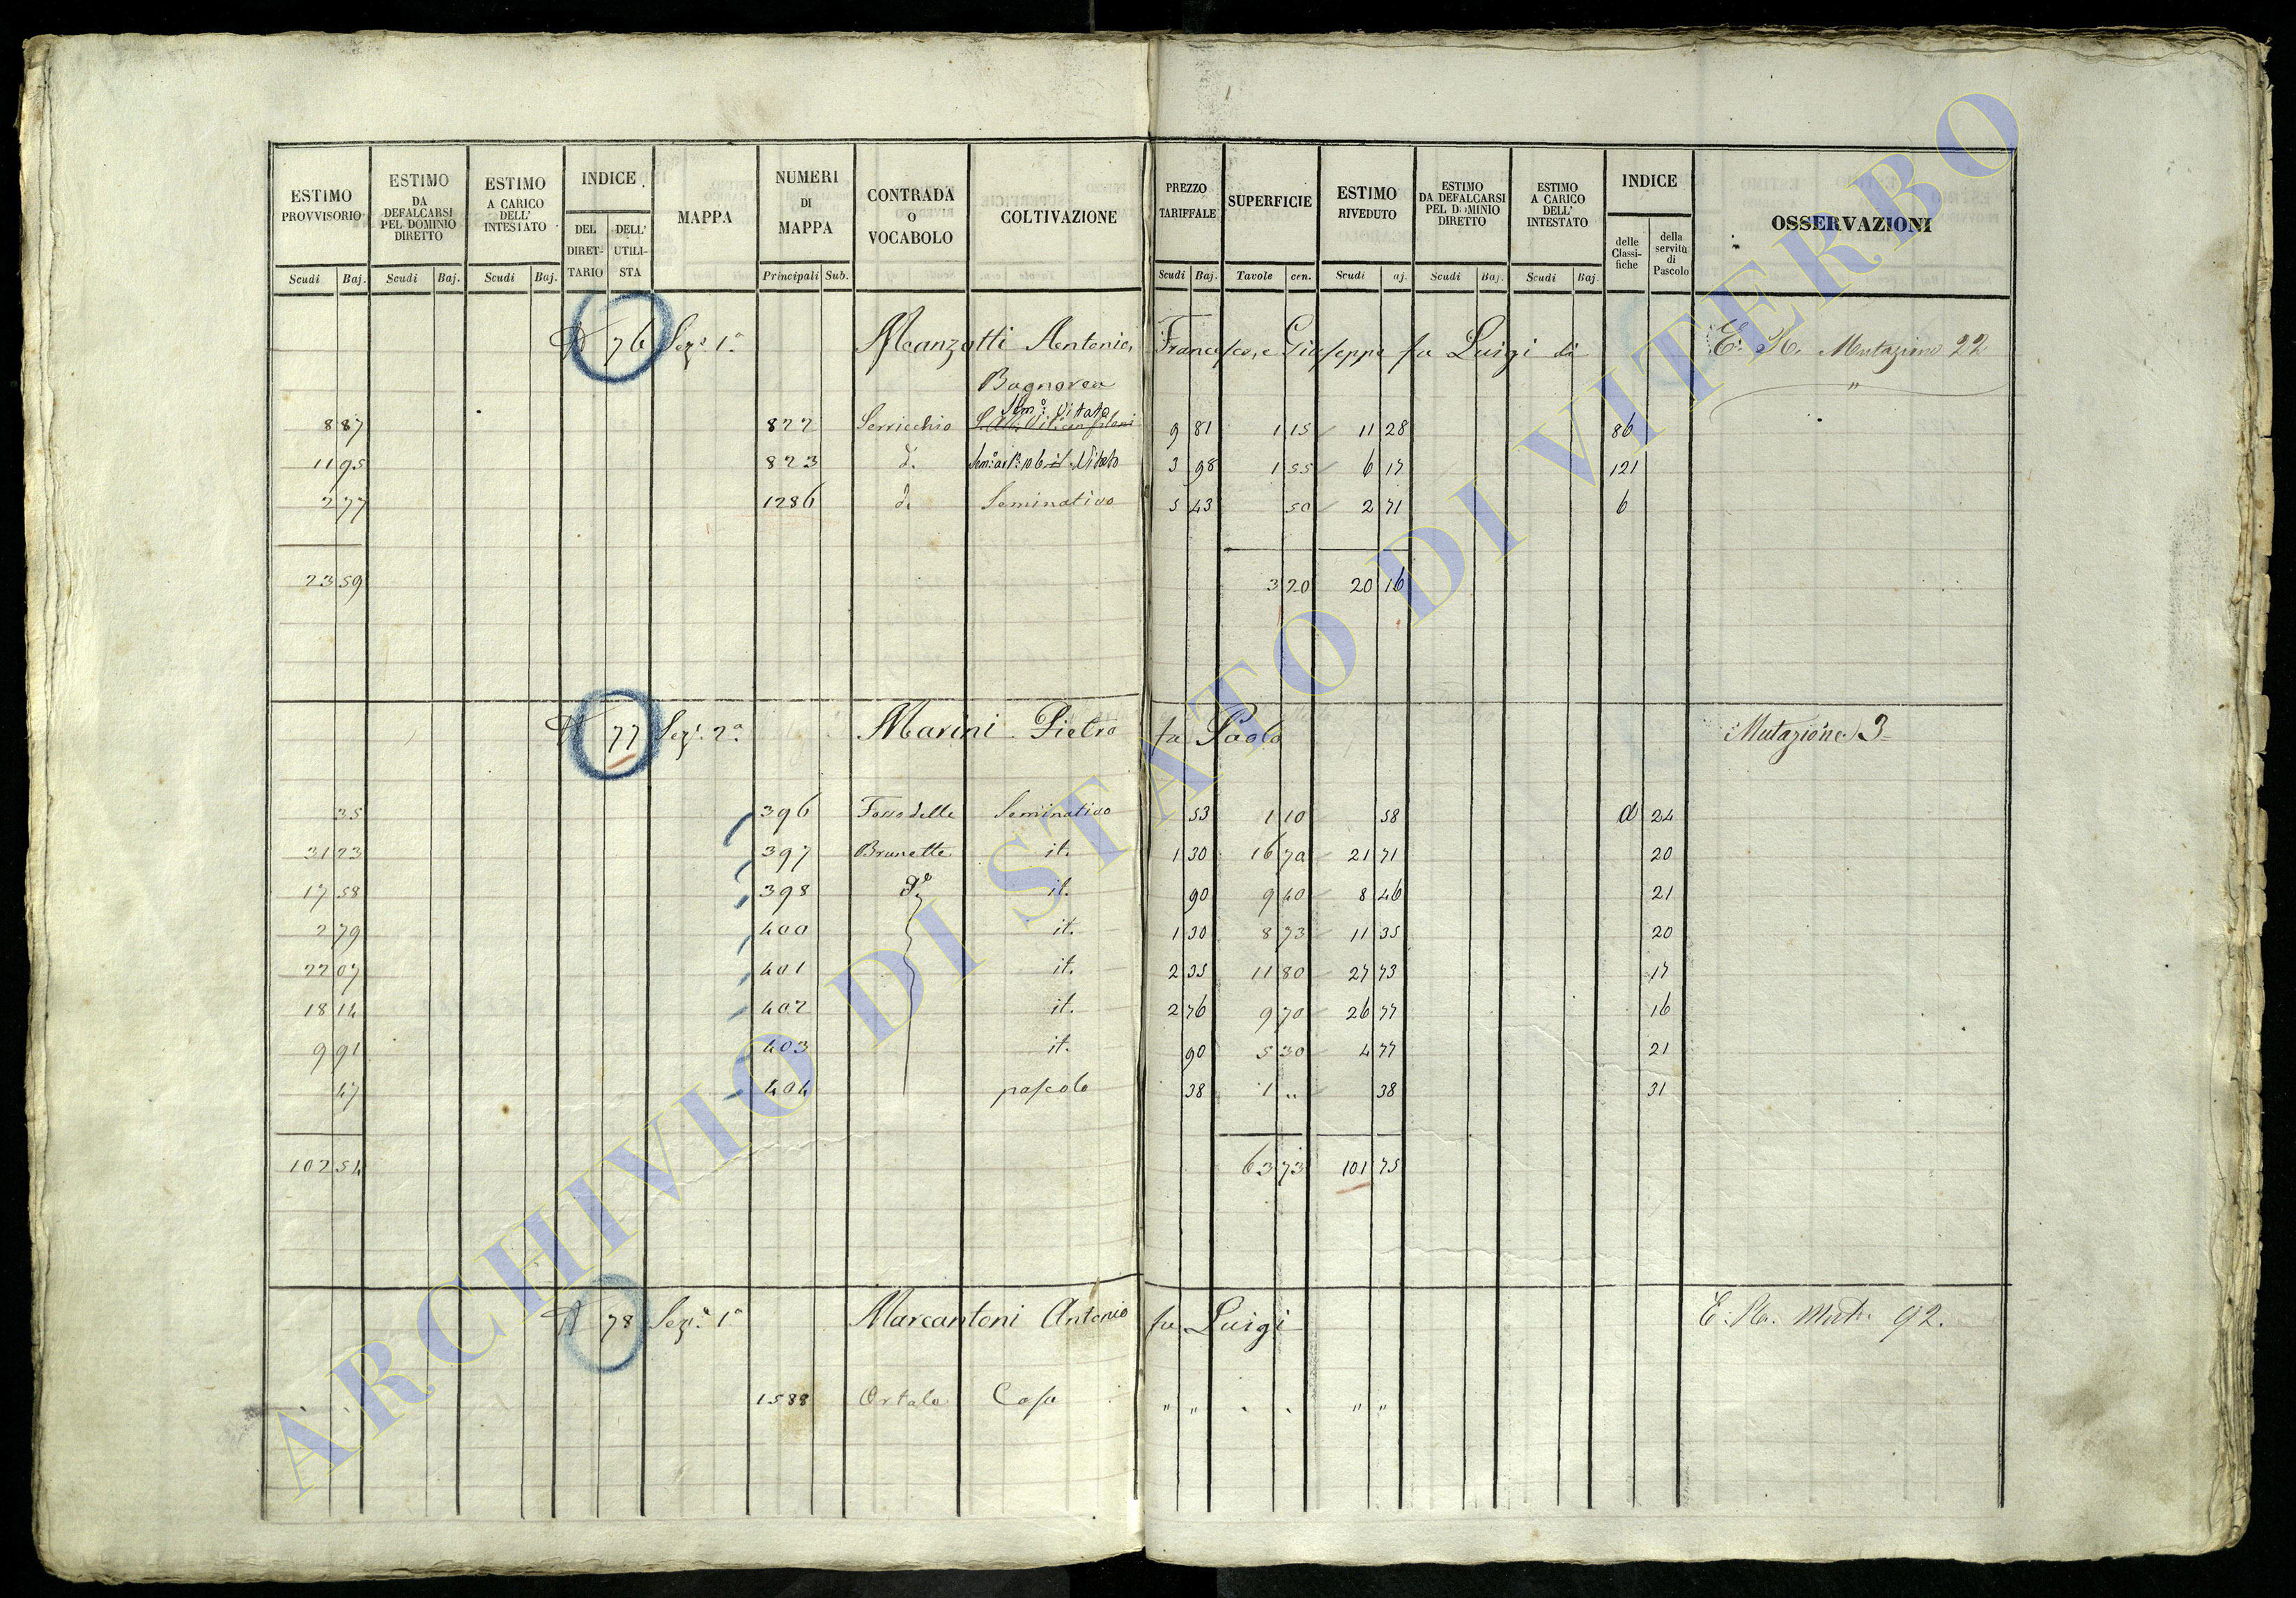 ESTIMO PROVVISORIO | ESTIMO DA DEFALCARSI PEL DOMINIO DIRETTO | ESTIMO A CARICO DELL' INTESTATO | INDICE | MAPPA | NUMERI DI MAPPA | CONTRADA O VOCABOLO | COLTIVAZIONE | PREZZO TARIFFALE | SUPERFICIE | ESTIMO RIVEDUTO | ESTIMO DA DEFALCARSI PEL DOMINIO DIRETTO | ESTIMO A CARICO DELL' INTESTATO | INDICE | OSSERVAZIONI
DEL DIRETTARIO | DELL' UTILISTA | delle Classifiche | della servitù di Pascolo
Scudi | Baj. | Scudi | Baj. | Scudi | Baj. | Principali | Sub. | Scudi | Baj. | Tavole | cen. | Scudi | aj. | Scudi | Baj. | Scudi | Baj
76 Sez.e 1.a Manzotti Antonio, Francesco, e Giuseppe fu Luigi di Mutazione 22
Bagnorea "
Sem.o Vitato
8 87 | 822 | Serricchio | 9 81 | 1 15 | 11 28 | 86
11 95 | 823 | d. | Vitato | 3 98 | 1 55 | 6 17 | 121
2 77 | 1286 | d. | Seminativo | 5 43 | 50 | 2 71 | 6
23 59 | 3 20 | 20 16
77 Sez.e 2.a Marini Pietro fu Paolo Mutazione 3
35 | 396 | Fosso delle | Seminativo | 53 | 1 10 | 58 | d | 24
31 23 | 397 | Brunette | it. | 1 30 | 16 70 | 21 71 | 20
17 58 | 398 | d.o | it. | 90 | 9 40 | 8 46 | 21
2 79 | 400 | it. | 1 30 | 8 73 | 11 35 | 20
22 07 | 401 | it. | 2 35 | 11 80 | 27 73 | 17
18 14 | 402 | it. | 2 76 | 9 70 | 26 77 | 16
9 91 | 403 | it. | 90 | 5 30 | 4 77 | 21
47 | 404 | pascolo | 38 | 1 " | 38 | 31
102 54 | 63 73 | 101 75
78 Sez.e 1.a Marcantoni Antonio fu Luigi Mut. 92.
1588 | Ortale | Casa | " " | " "
ARCHIVIO DI STATO DI VITERBO